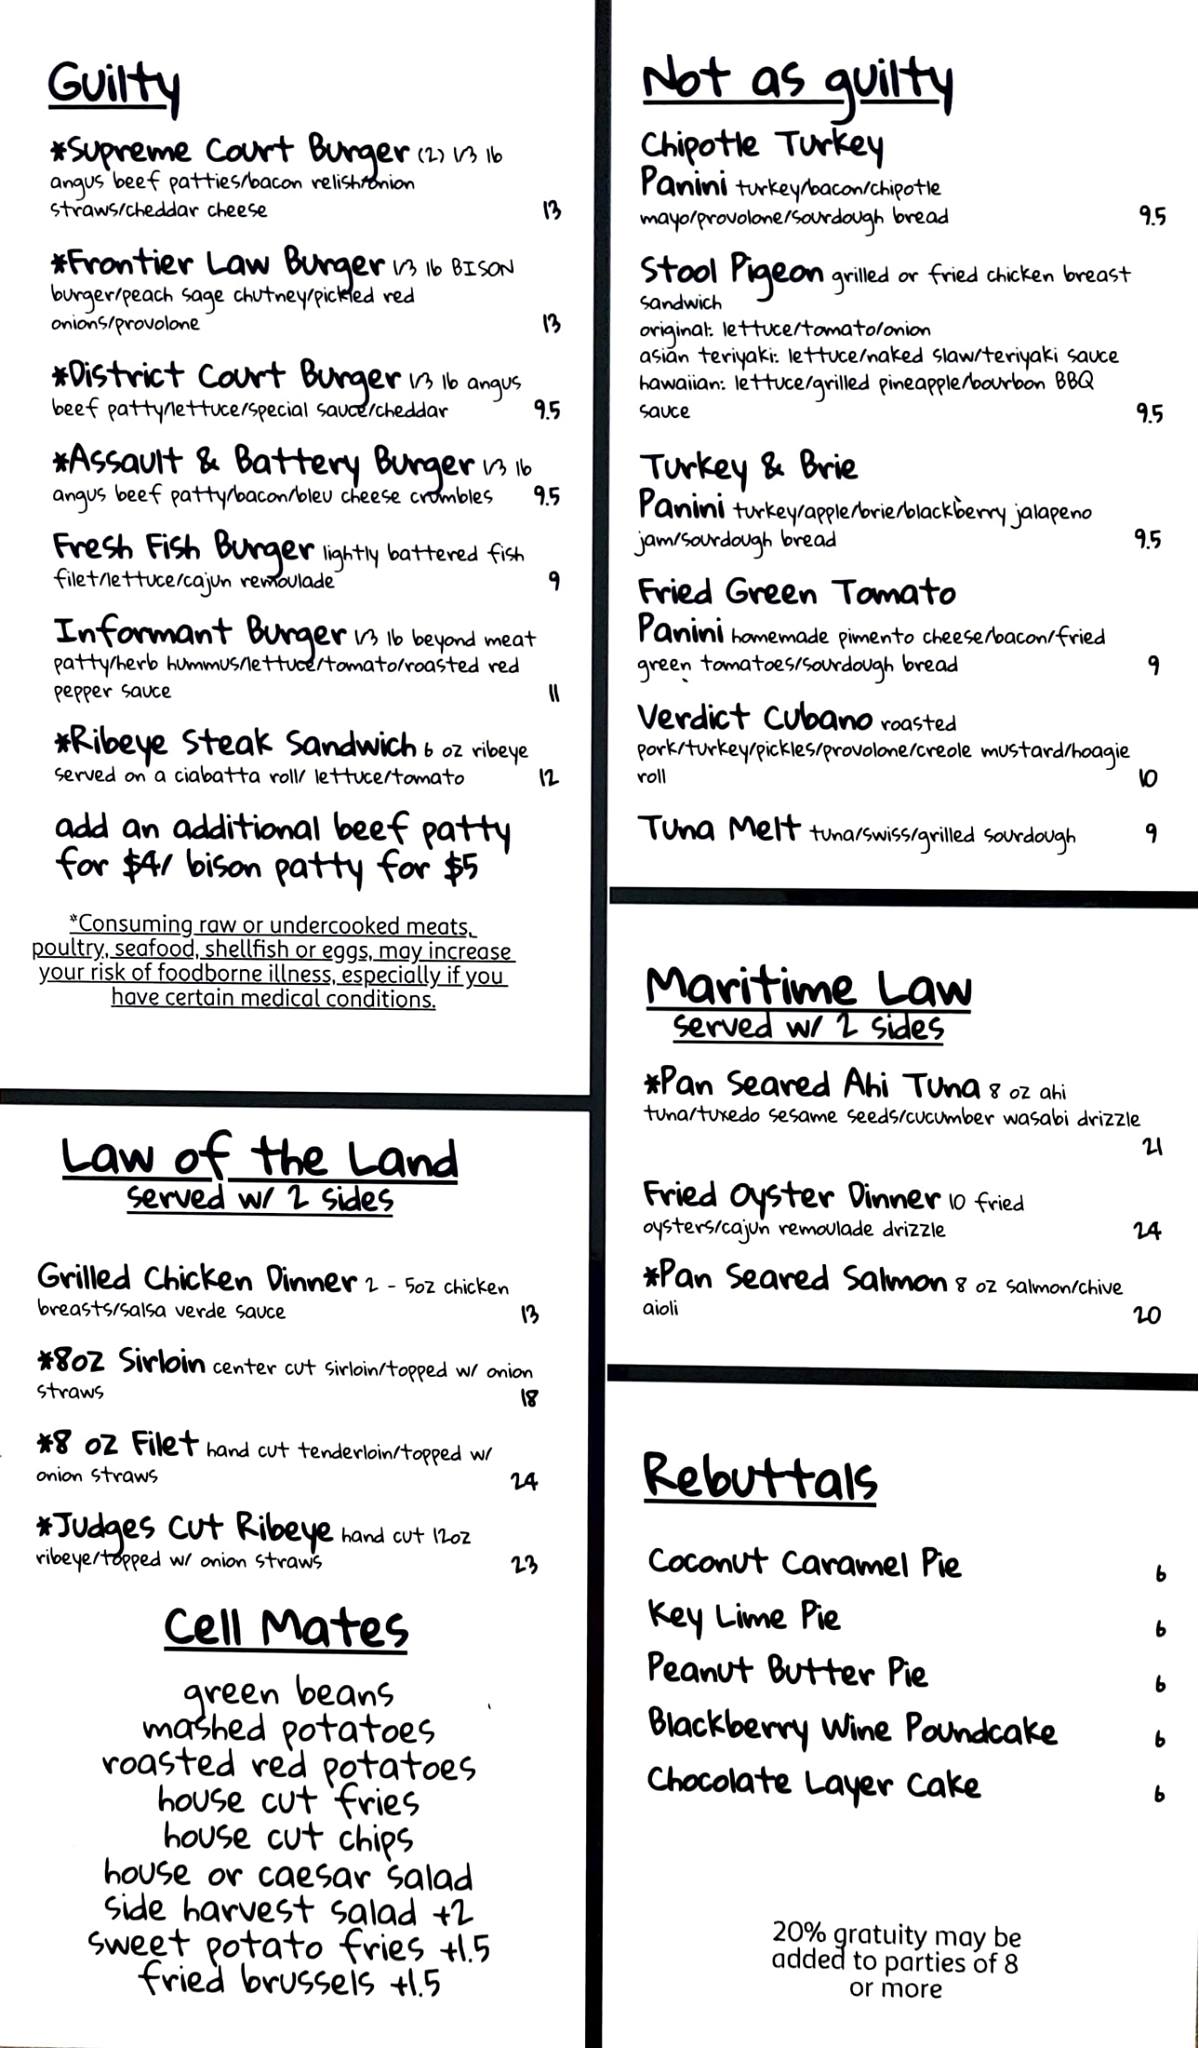 Guilty
*Supreme Court Burger (2) 1/3 lb
angus beef patties/bacon relish/onion
straws/cheddar cheese 13
*Frontier Law Burger 1/3 lb BISON
burger/peach sage chutney/pickled red
onions/provolone 13
*District Court Burger 1/3 lb angus
beef patty/lettuce/special sauce/cheddar 9.5
*Assault & Battery Burger 1/3 lb
angus beef patty/bacon/bleu cheese crumbles 9.5
Fresh Fish Burger lightly battered fish
filet/lettuce/cajun remoulade 9
Informant Burger 1/3 lb beyond meat
patty/herb hummus/lettuce/tomato/roasted red
pepper sauce 11
*Ribeye Steak Sandwich 6 oz ribeye
served on a ciabatta roll/ lettuce/tomato 12
add an additional beef patty
for $4/ bison patty for $5
*Consuming raw or undercooked meats,
poultry, seafood, shellfish or eggs, may increase
your risk of foodborne illness, especially if you
have certain medical conditions.
Law of the Land
served w/ 2 sides
Grilled Chicken Dinner 2 - 5oz chicken
breasts/salsa verde sauce 13
*8oz Sirloin center cut sirloin/topped w/ onion
straws 18
*8 oz Filet hand cut tenderloin/topped w/
onion straws 24
*Judges Cut Ribeye hand cut 12oz
ribeye/topped w/ onion straws 23
Cell Mates
green beans
mashed potatoes
roasted red potatoes
house cut fries
house cut chips
house or caesar salad
side harvest salad +2
sweet potato fries +1.5
fried brussels +1.5
Not as guilty
Chipotle Turkey
Panini turkey/bacon/chipotle
mayo/provolone/sourdough bread 9.5
Stool Pigeon grilled or fried chicken breast
sandwich
original: lettuce/tomato/onion
asian teriyaki: lettuce/naked slaw/teriyaki sauce
hawaiian: lettuce/grilled pineapple/bourbon BBQ
sauce 9.5
Turkey & Brie
Panini turkey/apple/brie/blackberry jalapeno
jam/sourdough bread 9.5
Fried Green Tomato
Panini homemade pimento cheese/bacon/fried
green tomatoes/sourdough bread 9
Verdict Cubano roasted
pork/turkey/pickles/provolone/creole mustard/hoagie
roll 10
Tuna Melt tuna/swiss/grilled sourdough 9
Maritime Law
served w/ 2 sides
*Pan Seared Ahi Tuna 8 oz ahi
tuna/tuxedo sesame seeds/cucumber wasabi drizzle
21
Fried Oyster Dinner 10 fried
oysters/cajun remoulade drizzle 24
*Pan Seared Salmon 8 oz salmon/chive
aioli 20
Rebuttals
Coconut Caramel Pie 6
Key Lime Pie 6
Peanut Butter Pie 6
Blackberry Wine Poundcake 6
Chocolate Layer Cake 6
20% gratuity may be
added to parties of 8
or more